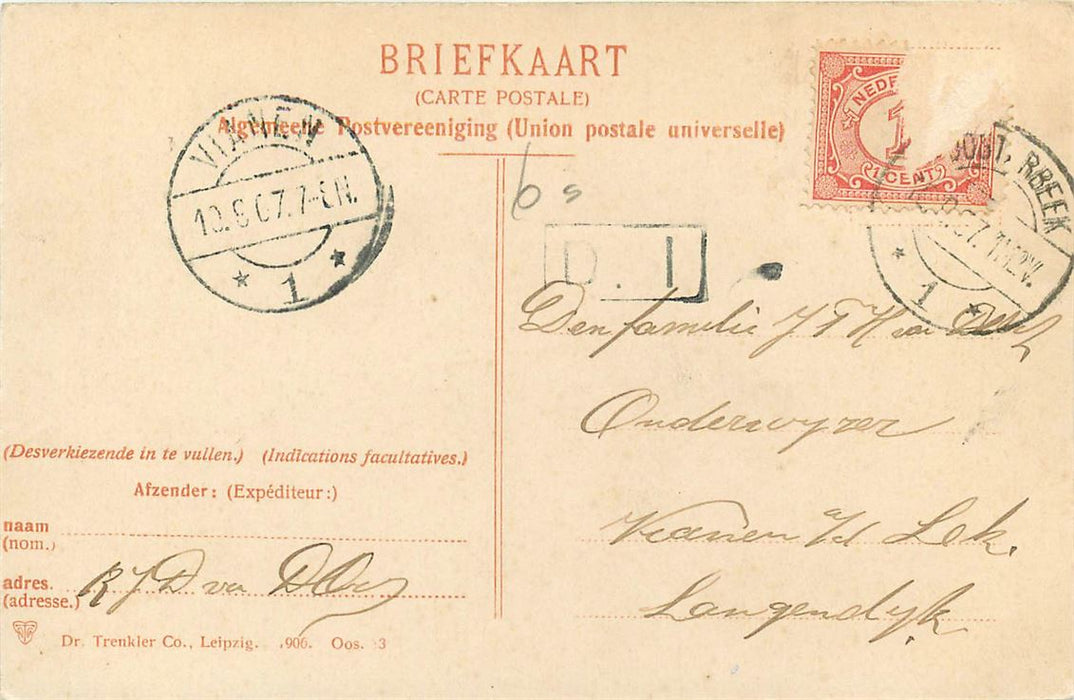 BRIEFKAART
(CARTE POSTALE)
Algemeene Postvereeniging (Union postale universelle)
VIANEN
10.8 07.7-8N.
1
NEDE
1
1 CENT
OOST. RBEEK
1
D. I
Den familie J F H
Onderwyzer
Vianen a/d Lek.
Langendyk
(Desverkiezende in te vullen.) (Indications facultatives.)
Afzender: (Expéditeur:)
naam
(nom.)
adres.
(adresse.)
R J D
Dr. Trenkler Co., Leipzig. 1906. Oos. 3